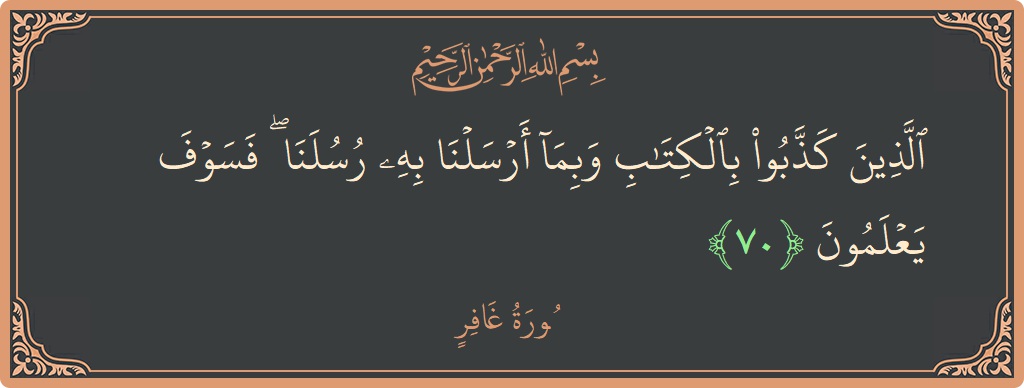 بِسْمِ اللهِ الرَّحْمٰنِ الرَّحِيْمِ
ٱلَّذِينَ كَذَّبُوا۟ بِٱلْكِتَـٰبِ وَبِمَآ أَرْسَلْنَا بِهِۦ رُسُلَنَا ۖ فَسَوْفَ
يَعْلَمُونَ ﴿٧٠﴾
ُورَةُ غَافِرٍ